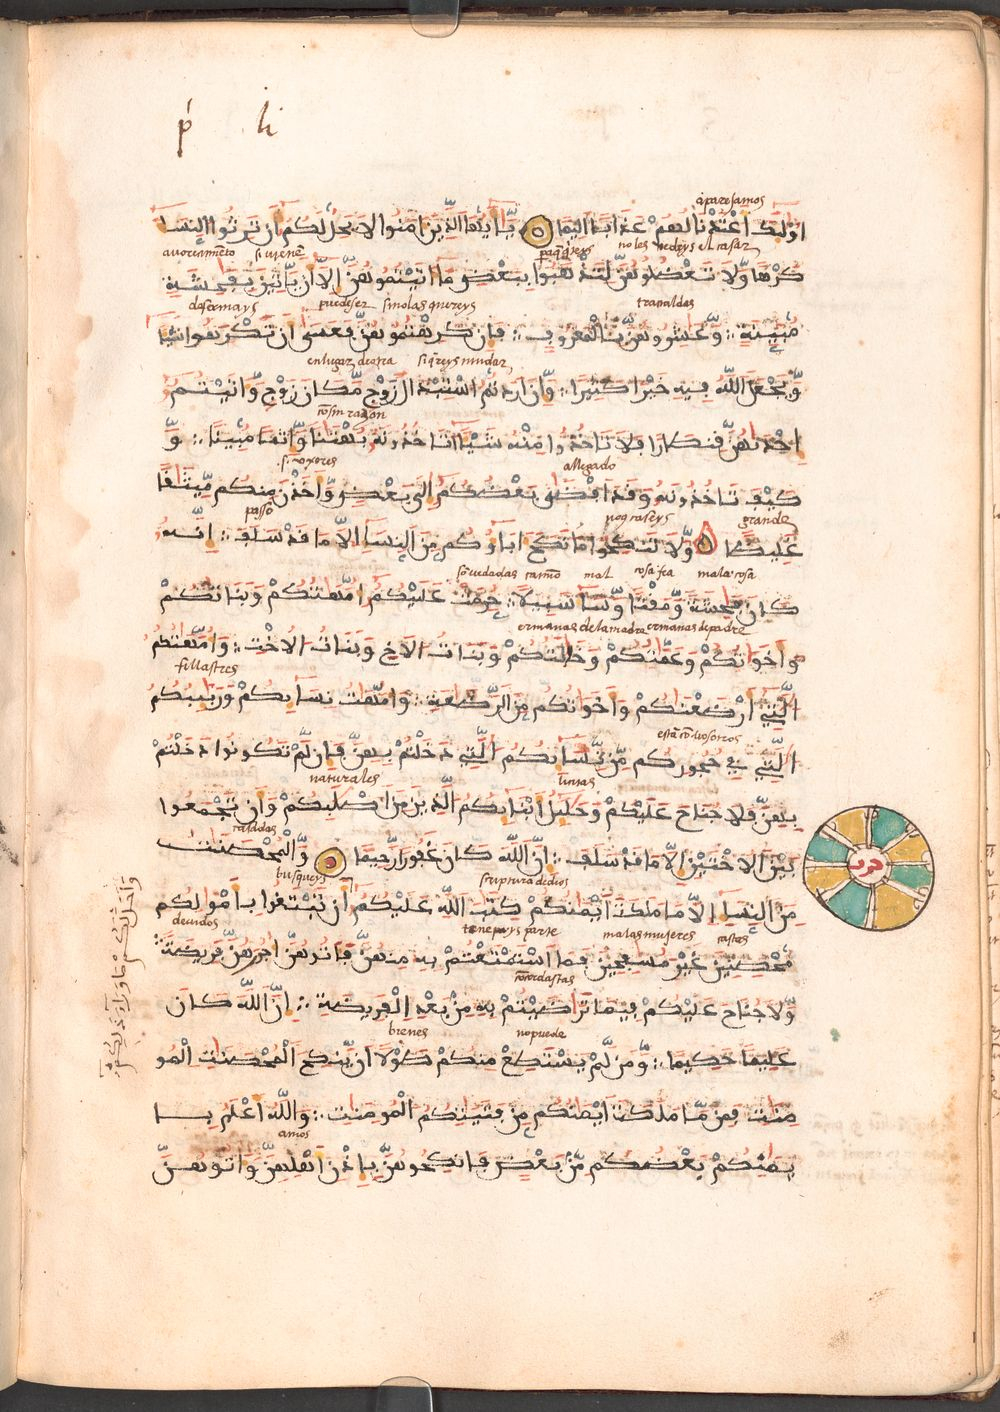 p li
aparejamos
اوْلَٰئِكَ اَعْتَدْنَا لَهُمْ عَذَابًا اَلِيمًا يَٰٓأَيُّهَا الَّذِينَ ءَامَنُوا لَا يَحِلُّ لَكُمْ أَن تَرِثُوا النِّسَاءَ
no les vedeys el casar
avorrecimiẽto si viene
كَرْهًا وَّلَا تَعْضُلُوهُنَّ لِتَذْهَبُوا بِبَعْضِ مَا ءَاتَيْتُمُوهُنَّ إِلَّا أَن يَّاتِينَ بِفَٰحِشَةٍ
desecmays puede ser si no las quereys trataldas
مُّبَيَّنَةٍ وَّعَاشِرُوهُنَّ بِالْمَعْرُوفِ فَإِن كَرِهْتُمُوهُنَّ فَعَسَىٰ أَن تَكْرَهُوا شَيْئًا
en lugar de otra si q̃reys mudar
وَّيَجْعَلَ اللَّهُ فِيهِ خَيْرًا كَثِيرًا وَّإِنْ أَرَدتُّمُ اسْتِبْدَالَ زَوْجٍ مَّكَانَ زَوْجٍ وَّءَاتَيْتُمُ
cõ sin razon
إِحْدَىٰهُنَّ قِنطَارًا فَلَا تَاخُذُوا مِنْهُ شَيْئًا أَتَاخُذُونَهُ بُهْتَٰنًا وَّإِثْمًا مُّبِينًا وَّ
allegado
كَيْفَ تَاخُذُونَهُ وَقَدْ أَفْضَىٰ بَعْضُكُمْ إِلَىٰ بَعْضٍ وَّأَخَذْنَ مِنكُم مِّيثَٰقًا
grande no q̃ caseys passo
غَلِيظًا وَّلَا تَنكِحُوا مَا نَكَحَ ءَابَاؤُكُم مِّنَ النِّسَاءِ إِلَّا مَا قَدْ سَلَفَ إِنَّهُ
mala cosa cosa fea mal camino sõ vedadas
كَانَ فَٰحِشَةً وَّمَقْتًا وَّسَاءَ سَبِيلًا حُرِّمَتْ عَلَيْكُمْ أُمَّهَٰتُكُمْ وَبَنَاتُكُمْ
ermanas de la madre ermanas de padre
وَأَخَوَاتُكُمْ وَعَمَّٰتُكُمْ وَخَٰلَٰتُكُمْ وَبَنَاتُ الْأَخِ وَبَنَاتُ الْأُخْتِ وَأُمَّهَٰتُكُمُ
fillastres
الَّٰتِي أَرْضَعْنَكُمْ وَأَخَوَاتُكُم مِّنَ الرَّضَٰعَةِ وَأُمَّهَٰتُ نِسَائِكُمْ وَرَبَٰئِبُكُمُ
estã cõ vosotros
الَّٰتِي فِي حُجُورِكُم مِّن نِّسَائِكُمُ الَّٰتِي دَخَلْتُم بِهِنَّ فَإِن لَّمْ تَكُونُوا دَخَلْتُم
naturales
بِهِنَّ فَلَا جُنَاحَ عَلَيْكُمْ وَحَلَٰئِلُ أَبْنَائِكُمُ الَّذِينَ مِنْ أَصْلَٰبِكُمْ وَأَن تَجْمَعُوا
casadas
بَيْنَ الْأُخْتَيْنِ إِلَّا مَا قَدْ سَلَفَ إِنَّ اللَّهَ كَانَ غَفُورًا رَّحِيمًا وَّالْمُحْصَنَٰتُ
busqueys scriptura de dios
مِنَ النِّسَاءِ إِلَّا مَا مَلَكَتْ أَيْمَٰنُكُمْ كِتَٰبَ اللَّهِ عَلَيْكُمْ أَن تَبْتَغُوا بِأَمْوَٰلِكُم
devidos malas mujeres castos
مُّحْصِنِينَ غَيْرَ مُسَٰفِحِينَ فَمَا اسْتَمْتَعْتُم بِهِ مِنْهُنَّ فَـَٔاتُوهُنَّ أُجُورَهُنَّ فَرِيضَةً
concordastas
وَّلَا جُنَاحَ عَلَيْكُمْ فِيمَا تَرَٰضَيْتُم بِهِ مِنْ بَعْدِ الْفَرِيضَةِ إِنَّ اللَّهَ كَانَ
bienes no puede
عَلِيمًا حَكِيمًا وَّمَن لَّمْ يَسْتَطِعْ مِنكُمْ طَوْلًا أَن يَّنكِحَ الْمُحْصَنَٰتِ الْمُو
مِنَٰتِ فَمِن مَّا مَلَكَتْ أَيْمَٰنُكُم مِّن فَتَيَٰتِكُمُ الْمُومِنَٰتِ وَاللَّهُ أَعْلَمُ بِـ
amos
إِيمَٰنِكُمْ بَعْضُكُم مِّنْ بَعْضٍ فَانكِحُوهُنَّ بِإِذْنِ أَهْلِهِنَّ وَءَاتُوهُنَّ
حزب
وَأَحَلَّ لَكُم مَّا وَرَاءَ ذَٰلِكُمْ